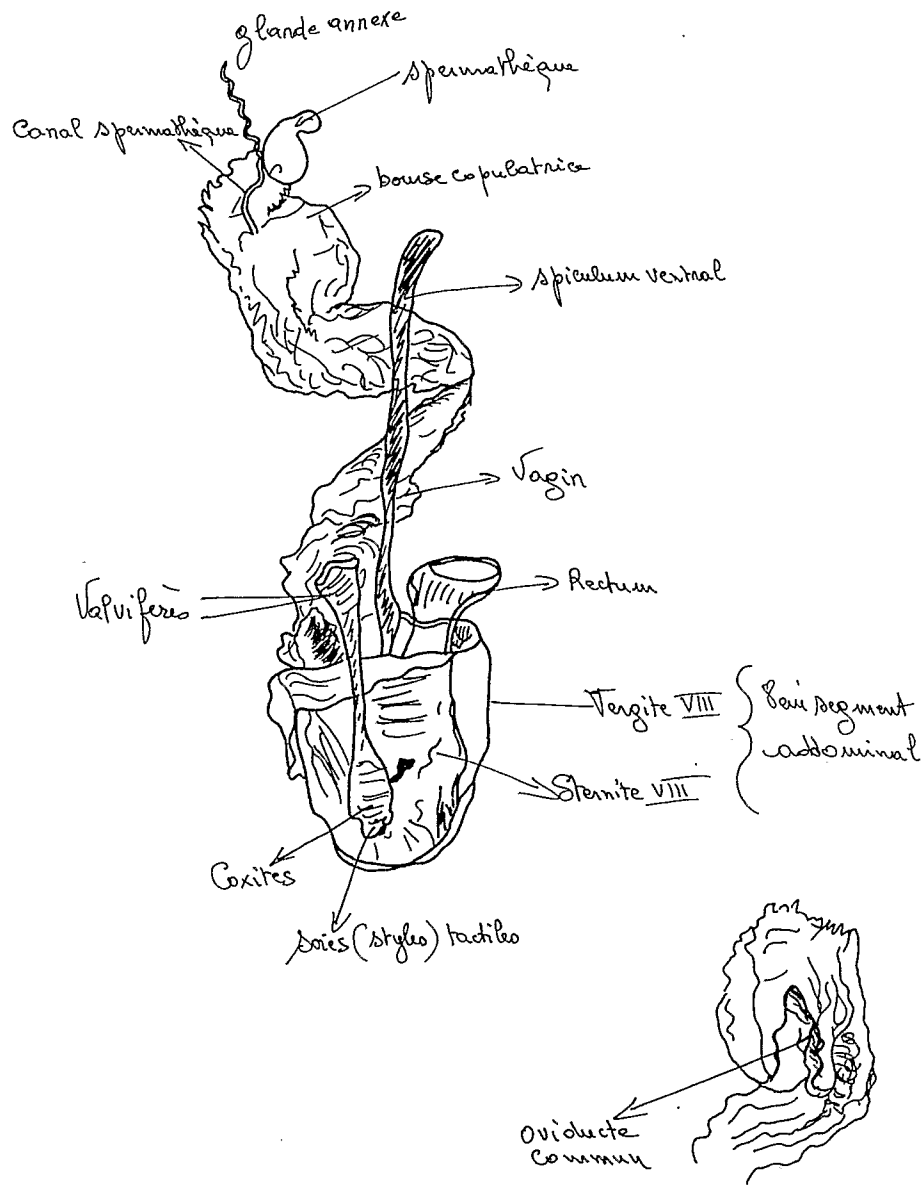 glande annexe
spermathèque
Canal spermathèque
bourse copulatrice
spiculum ventral
Vagin
Rectum
Valvifères
Tergite VIII
8em segment
abdominal
Sternite VIII
Coxites
soies (styles) tactiles
Oviducte
commun